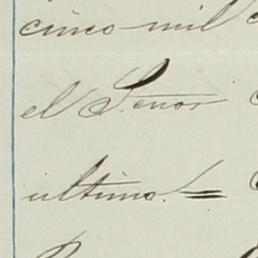 cinco mil
el Señor
ultimo. =